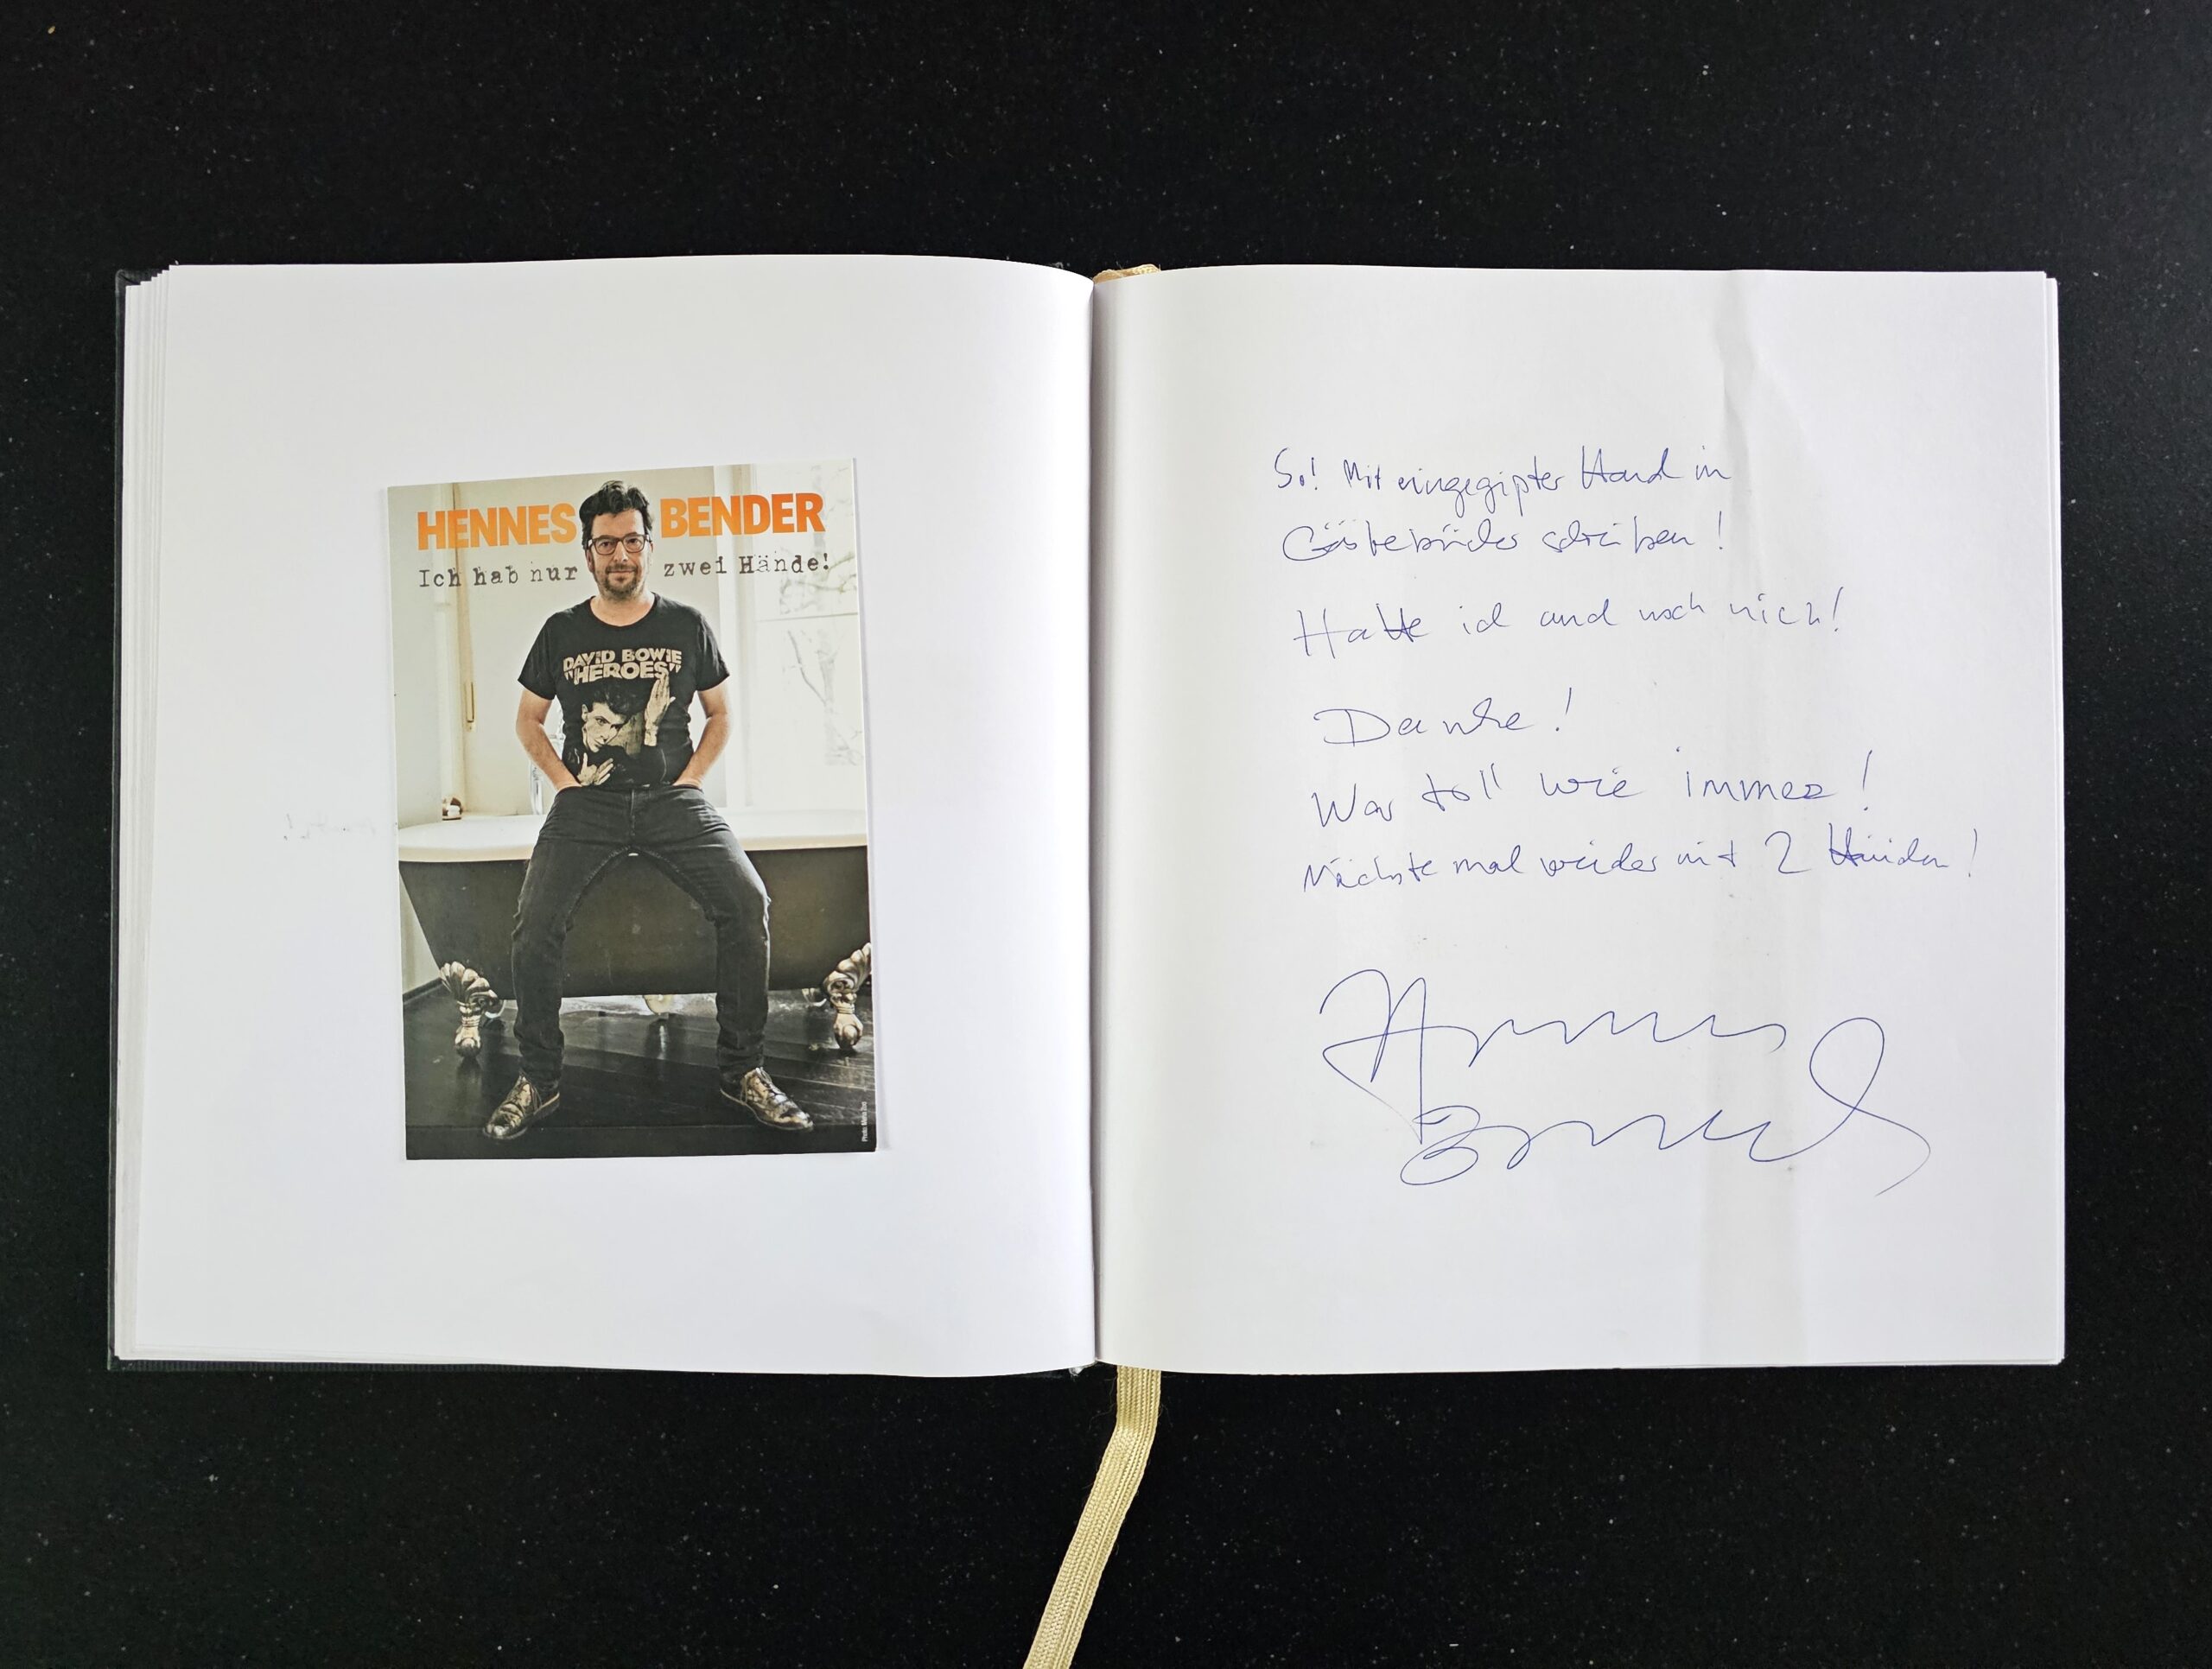 HENNES BENDER
Ich hab nur zwei Hände!
DAVID BOWIE
"HEROES"
So! Mit eingegipter Hand in
Gästebücher schreiben!
Hatte ich auch noch nich!
Danke!
War toll wie immer!
Nächste mal wieder mit 2 Händen!
Hennes
Bender